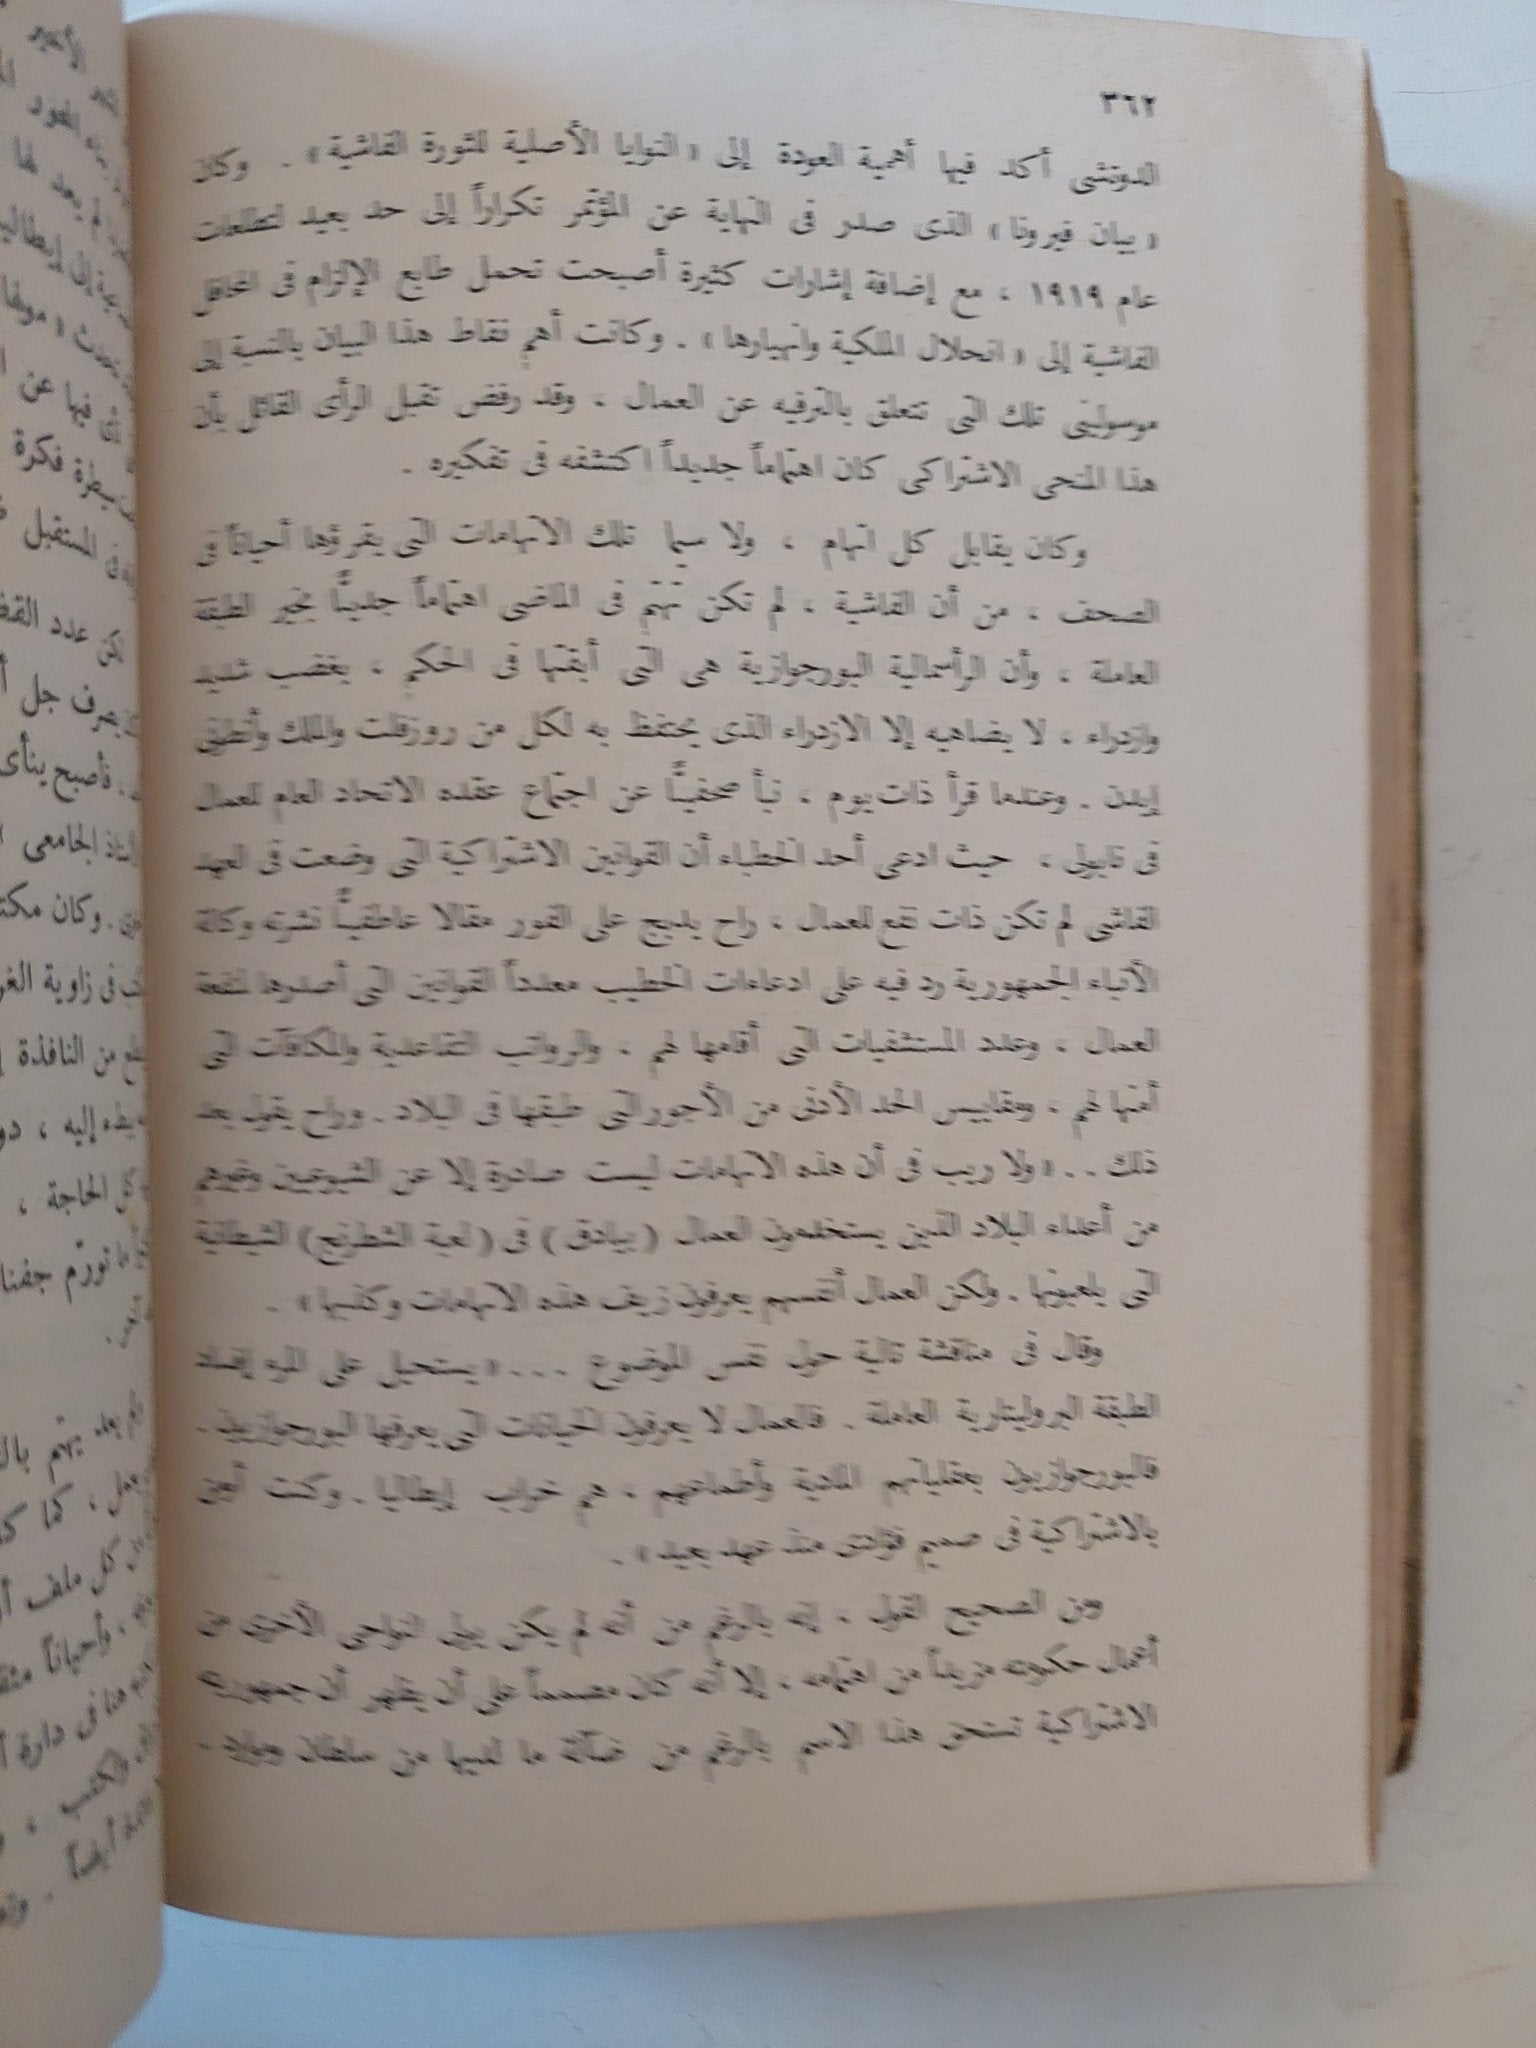 ٣٦٢
الدوتشى أكد فيها أهمية العودة إلى « النوايا الأصلية للثورة الفاشية » . وكان
« بيان فيرونا » الذى صدر فى النهاية عن المؤتمر تكراراً إلى حد بعيد لتطلعات
عام ١٩١٩ ، مع إضافة إشارات كثيرة أصبحت تحمل طابع الإلزام فى المحافل
الفاشية إلى « انحلال الملكية وانهيارها » . وكانت أهم نقاط هذا البيان بالنسبة إلى
موسولينى تلك التى تتعلق بالترفيه عن العمال ، وقد رفض تقبل الرأى القائل بأن
هذا المنحى الاشتراكى كان اهتماماً جديداً اكتشفه فى تفكيره .
وكان يقابل كل اتهام ، ولا سيما تلك الاتهامات التى يقرؤها أحياناً فى
الصحف ، من أن الفاشية ، لم تكن تهتم فى الماضى اهتماماً جديًّا بخير الطبقة
العاملة ، وأن الرأسمالية البورجوازية هى التى أبقتها فى الحكم ، بغضب شديد
وازدراء ، لا يضاهيه إلا الازدراء الذى يحتفظ به لكل من روزفلت والملك وأنطونى
إيدن . وعندما قرأ ذات يوم ، نبأ صحفيًّا عن اجتماع عقده الاتحاد العام للعمال
فى نابولى ، حيث ادعى أحد الخطباء أن القوانين الاشتراكية التى وضعت فى العهد
الفاشى لم تكن ذات نفع للعمال ، راح يدبج على الفور مقالا عاطفيًّا نشرته وكالة
الأنباء الجمهورية رد فيه على ادعاءات الخطيب معدداً القوانين التى أصدرها لمنفعة
العمال ، وعدد المستشفيات التى أقامها لهم ، والرواتب التقاعدية والمكافآت التى
أمنها لهم ، ومقاييس الحد الأدنى من الأجور التى طبقها فى البلاد . وراح يقول بعد
ذلك . . « ولا ريب فى أن هذه الاتهامات ليست صادرة إلا عن الشيوعيين وغيرهم
من أعداء البلاد الذين يستخدمون العمال ( بيادق ) فى ( لعبة الشطرنج ) الشيطانية
التى يلعبونها . ولكن العمال أنفسهم يعرفون زيف هذه الاتهامات وكذبها » .
وقال فى مناقشة تالية حول نفس الموضوع . . . « يستحيل على المرء إفساد
الطبقة البروليتارية العاملة . فالعمال لا يعرفون الخيانات التى يعرفها البورجوازيون .
فالبورجوازيون بعقلياتهم المادية وأطماعهم ، هم خراب إيطاليا . وكنت أومن
بالاشتراكية فى صميم فؤادى منذ عهد بعيد » .
ومن الصحيح القول ، إنه بالرغم من أنه لم يكن يولى النواحى الأخرى من
أعمال حكومته مزيداً من اهتمامه ، إلا أنه كان مصمماً على أن يظهر أن جمهوريته
الاشتراكية تستحق هذا الاسم بالرغم من ضآلة ما لديها من سلطان وموارد .